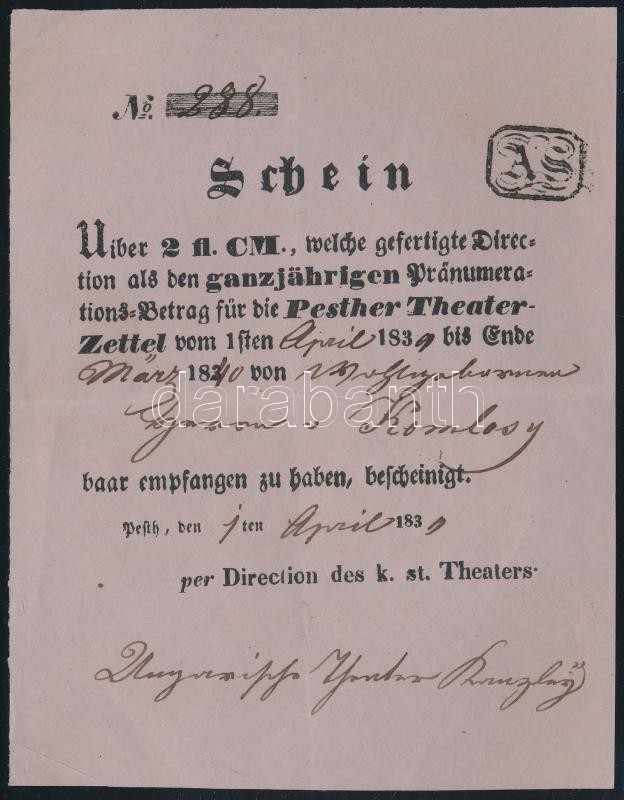 No. 238.
AS
Schein
Uiber 2 fl. CM., welche gefertigte Direc-
tion als den ganzjährigen Pränumera-
tions-Betrag für die Pesther Theater-
Zettel vom 1sten April 1839 bis Ende
März 1840 von Wohlgebornen
v Komlosy
darabanth
baar empfangen zu haben, bescheinigt.
Pesth, den 1ten April 1839
per Direction des k. st. Theaters.
Ungarische Theater Kanzley